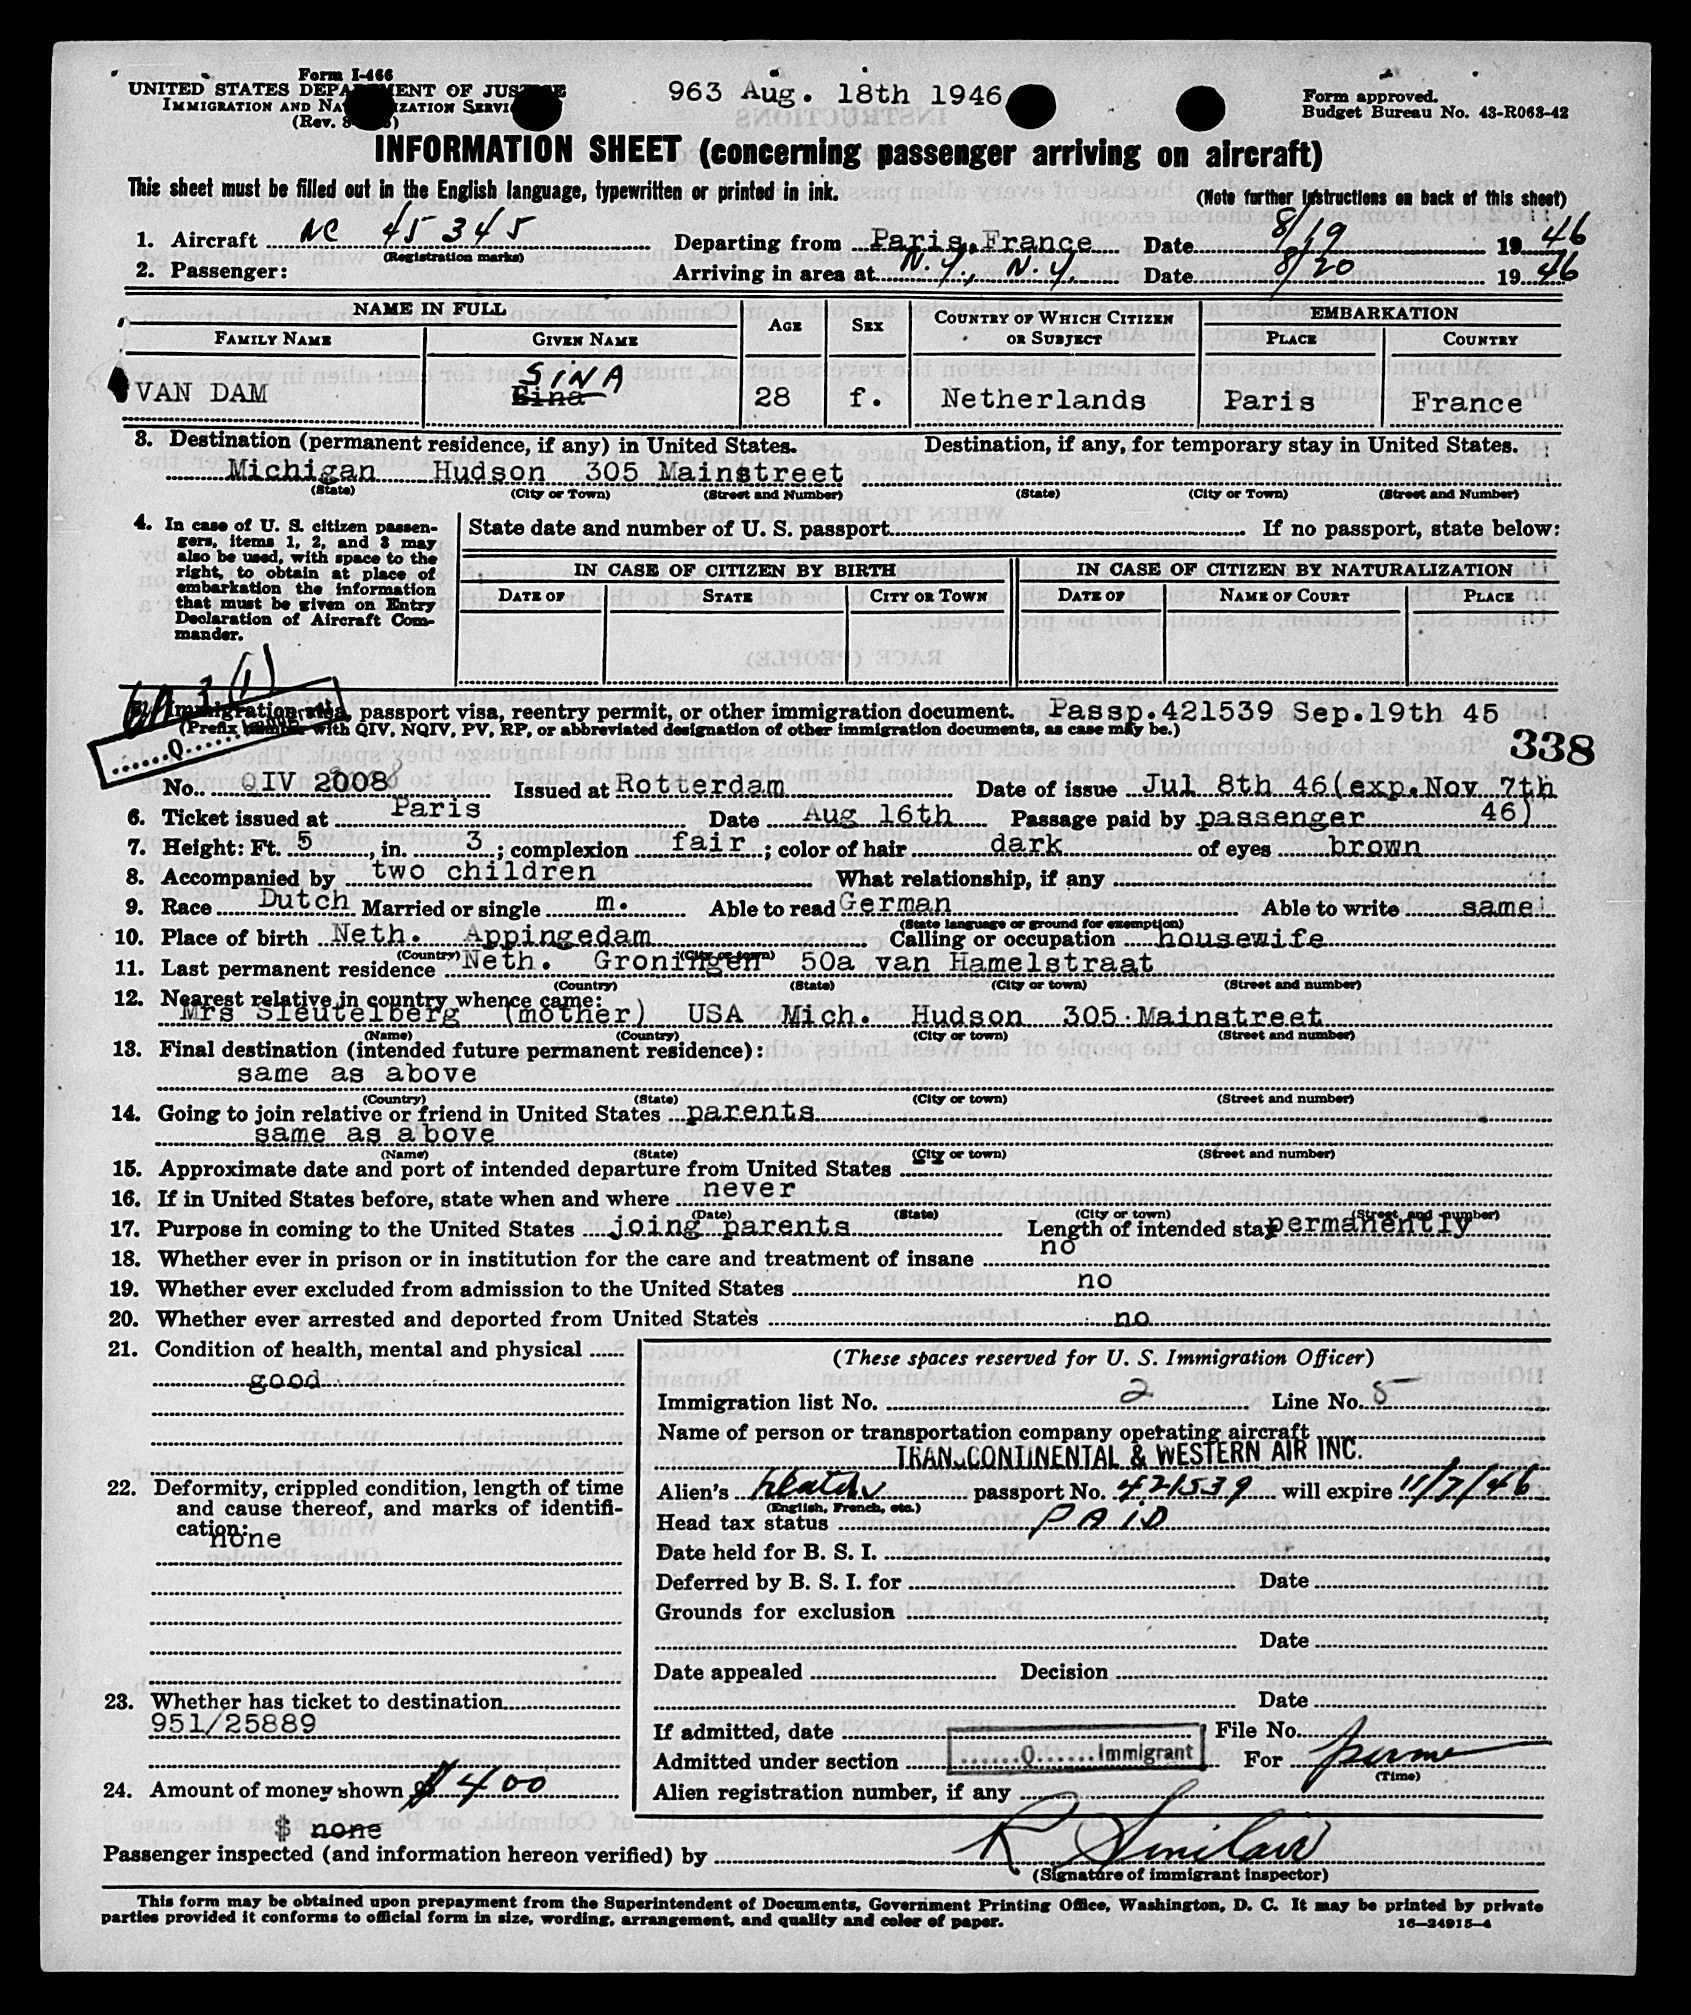 Form I-466
UNITED STATES DEPARTMENT OF JUSTICE
IMMIGRATION AND NATURALIZATION SERVICE
(Rev. 8
963 Aug. 18th 1946
Form approved.
Budget Bureau No. 43-R063-42
INFORMATION SHEET (concerning passenger arriving on aircraft)
This sheet must be filled out in the English language, typewritten or printed in ink.
(Note further instructions on back of this sheet)
1. Aircraft NC 45345 Departing from Paris, France Date 8/19 1946
(Registration marks)
2. Passenger: Arriving in area at N.Y., N.Y. Date 8/20 1946
NAME IN FULL AGE SEX COUNTRY OF WHICH CITIZEN OR SUBJECT EMBARKATION
FAMILY NAME GIVEN NAME PLACE COUNTRY
SINA
VAN DAM Eina 28 f. Netherlands Paris France
3. Destination (permanent residence, if any) in United States. Destination, if any, for temporary stay in United States.
Michigan Hudson 305 Mainstreet
(State) (City or Town) (Street and Number) (State) (City or Town) (Street and Number)
4. In case of U. S. citizen passengers, items 1, 2, and 3 may also be used, with space to the right, to obtain at place of embarkation the information that must be given on Entry Declaration of Aircraft Commander.
State date and number of U. S. passport If no passport, state below:
IN CASE OF CITIZEN BY BIRTH IN CASE OF CITIZEN BY NATURALIZATION
DATE OF STATE CITY OR TOWN DATE OF NAME OF COURT PLACE
3 (1)
Immigration visa, passport visa, reentry permit, or other immigration document. Passp.421539 Sep.19th 45
(Prefix number with QIV, NQIV, PV, RP, or abbreviated designation of other immigration documents, as case may be.)
......Q......
338
No. QIV 2008 Issued at Rotterdam Date of issue Jul 8th 46(exp.Nov 7th
6. Ticket issued at Paris Date Aug 16th Passage paid by passenger 46)
7. Height: Ft. 5, in. 3; complexion fair; color of hair dark of eyes brown
8. Accompanied by two children What relationship, if any
9. Race Dutch Married or single m. Able to read German Able to write same
(State language or ground for exemption)
10. Place of birth Neth. Appingedam Calling or occupation housewife
(Country) (City or town)
11. Last permanent residence Neth. Groningen 50a van Hamelstraat
(Country) (State) (City or town) (Street and number)
12. Nearest relative in country whence came:
Mrs Sleutelberg (mother) USA Mich. Hudson 305 Mainstreet
(Name) (Country) (City or town) (Street and number)
13. Final destination (intended future permanent residence):
same as above
(Country) (State) (City or town) (Street and number)
14. Going to join relative or friend in United States parents
same as above
(Name) (State) (City or town) (Street and number)
15. Approximate date and port of intended departure from United States
16. If in United States before, state when and where never
(Date) (State) (City or town) (Street and number)
17. Purpose in coming to the United States joing parents Length of intended stay permanently
18. Whether ever in prison or in institution for the care and treatment of insane no
19. Whether ever excluded from admission to the United States no
20. Whether ever arrested and deported from United States no
21. Condition of health, mental and physical
good
(These spaces reserved for U. S. Immigration Officer)
Immigration list No. 2 Line No. 5
Name of person or transportation company operating aircraft
TRANSCONTINENTAL & WESTERN AIR INC.
22. Deformity, crippled condition, length of time and cause thereof, and marks of identification:
none
Alien's passport No. 421539 will expire 11/7/46
(English, French, etc.)
Head tax status PAID
Date held for B. S. I.
Deferred by B. S. I. for Date
Grounds for exclusion
Date
Date appealed Decision
Date
23. Whether has ticket to destination
951/25889
If admitted, date File No.
Admitted under section ......Q...... Immigrant For perm
(Time)
24. Amount of money shown $400
Alien registration number, if any
$ none
Passenger inspected (and information hereon verified) by R Sinclair
(Signature of immigrant inspector)
This form may be obtained upon prepayment from the Superintendent of Documents, Government Printing Office, Washington, D. C. It may be printed by private
parties provided it conforms to official form in size, wording, arrangement, and quality and color of paper.
16—24915-4